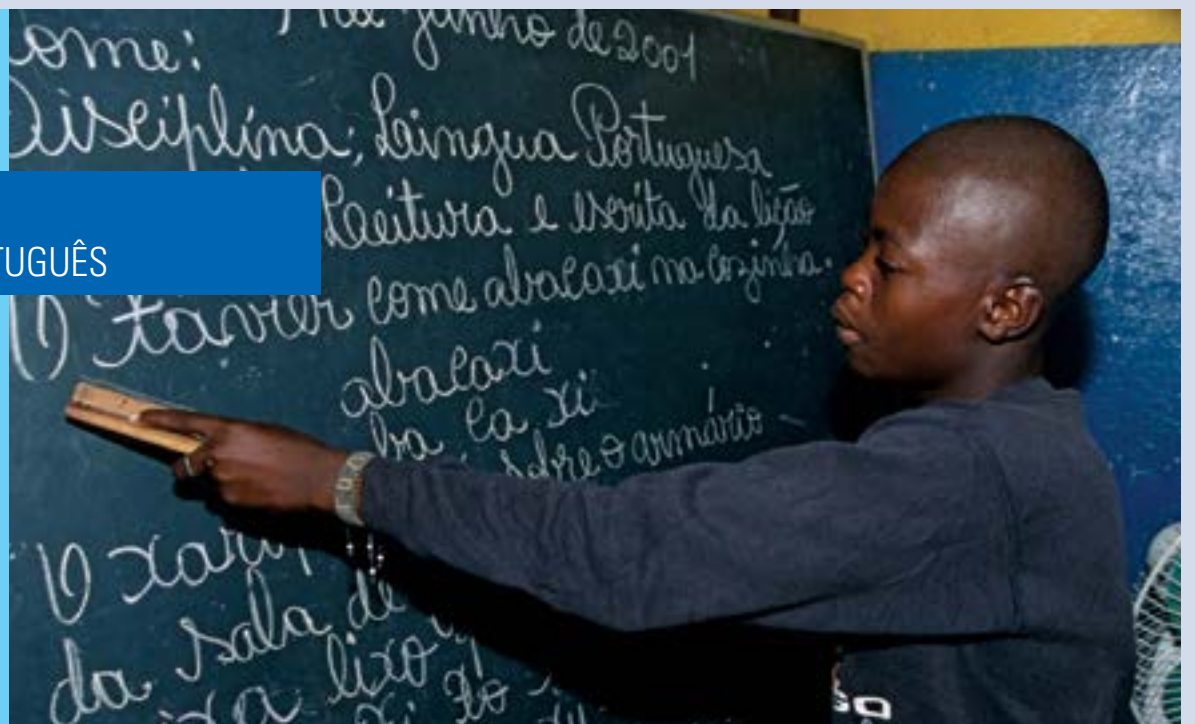 ome: junho de 2001
Disciplina: Língua Portuguesa
Leitura e escrita da lição
TUGUÊS
1) Xavier come abacaxi na cozinha.
abacaxi
ba ca xi
sobre o armário
O xaro
da sala de
xa lixo
xi do